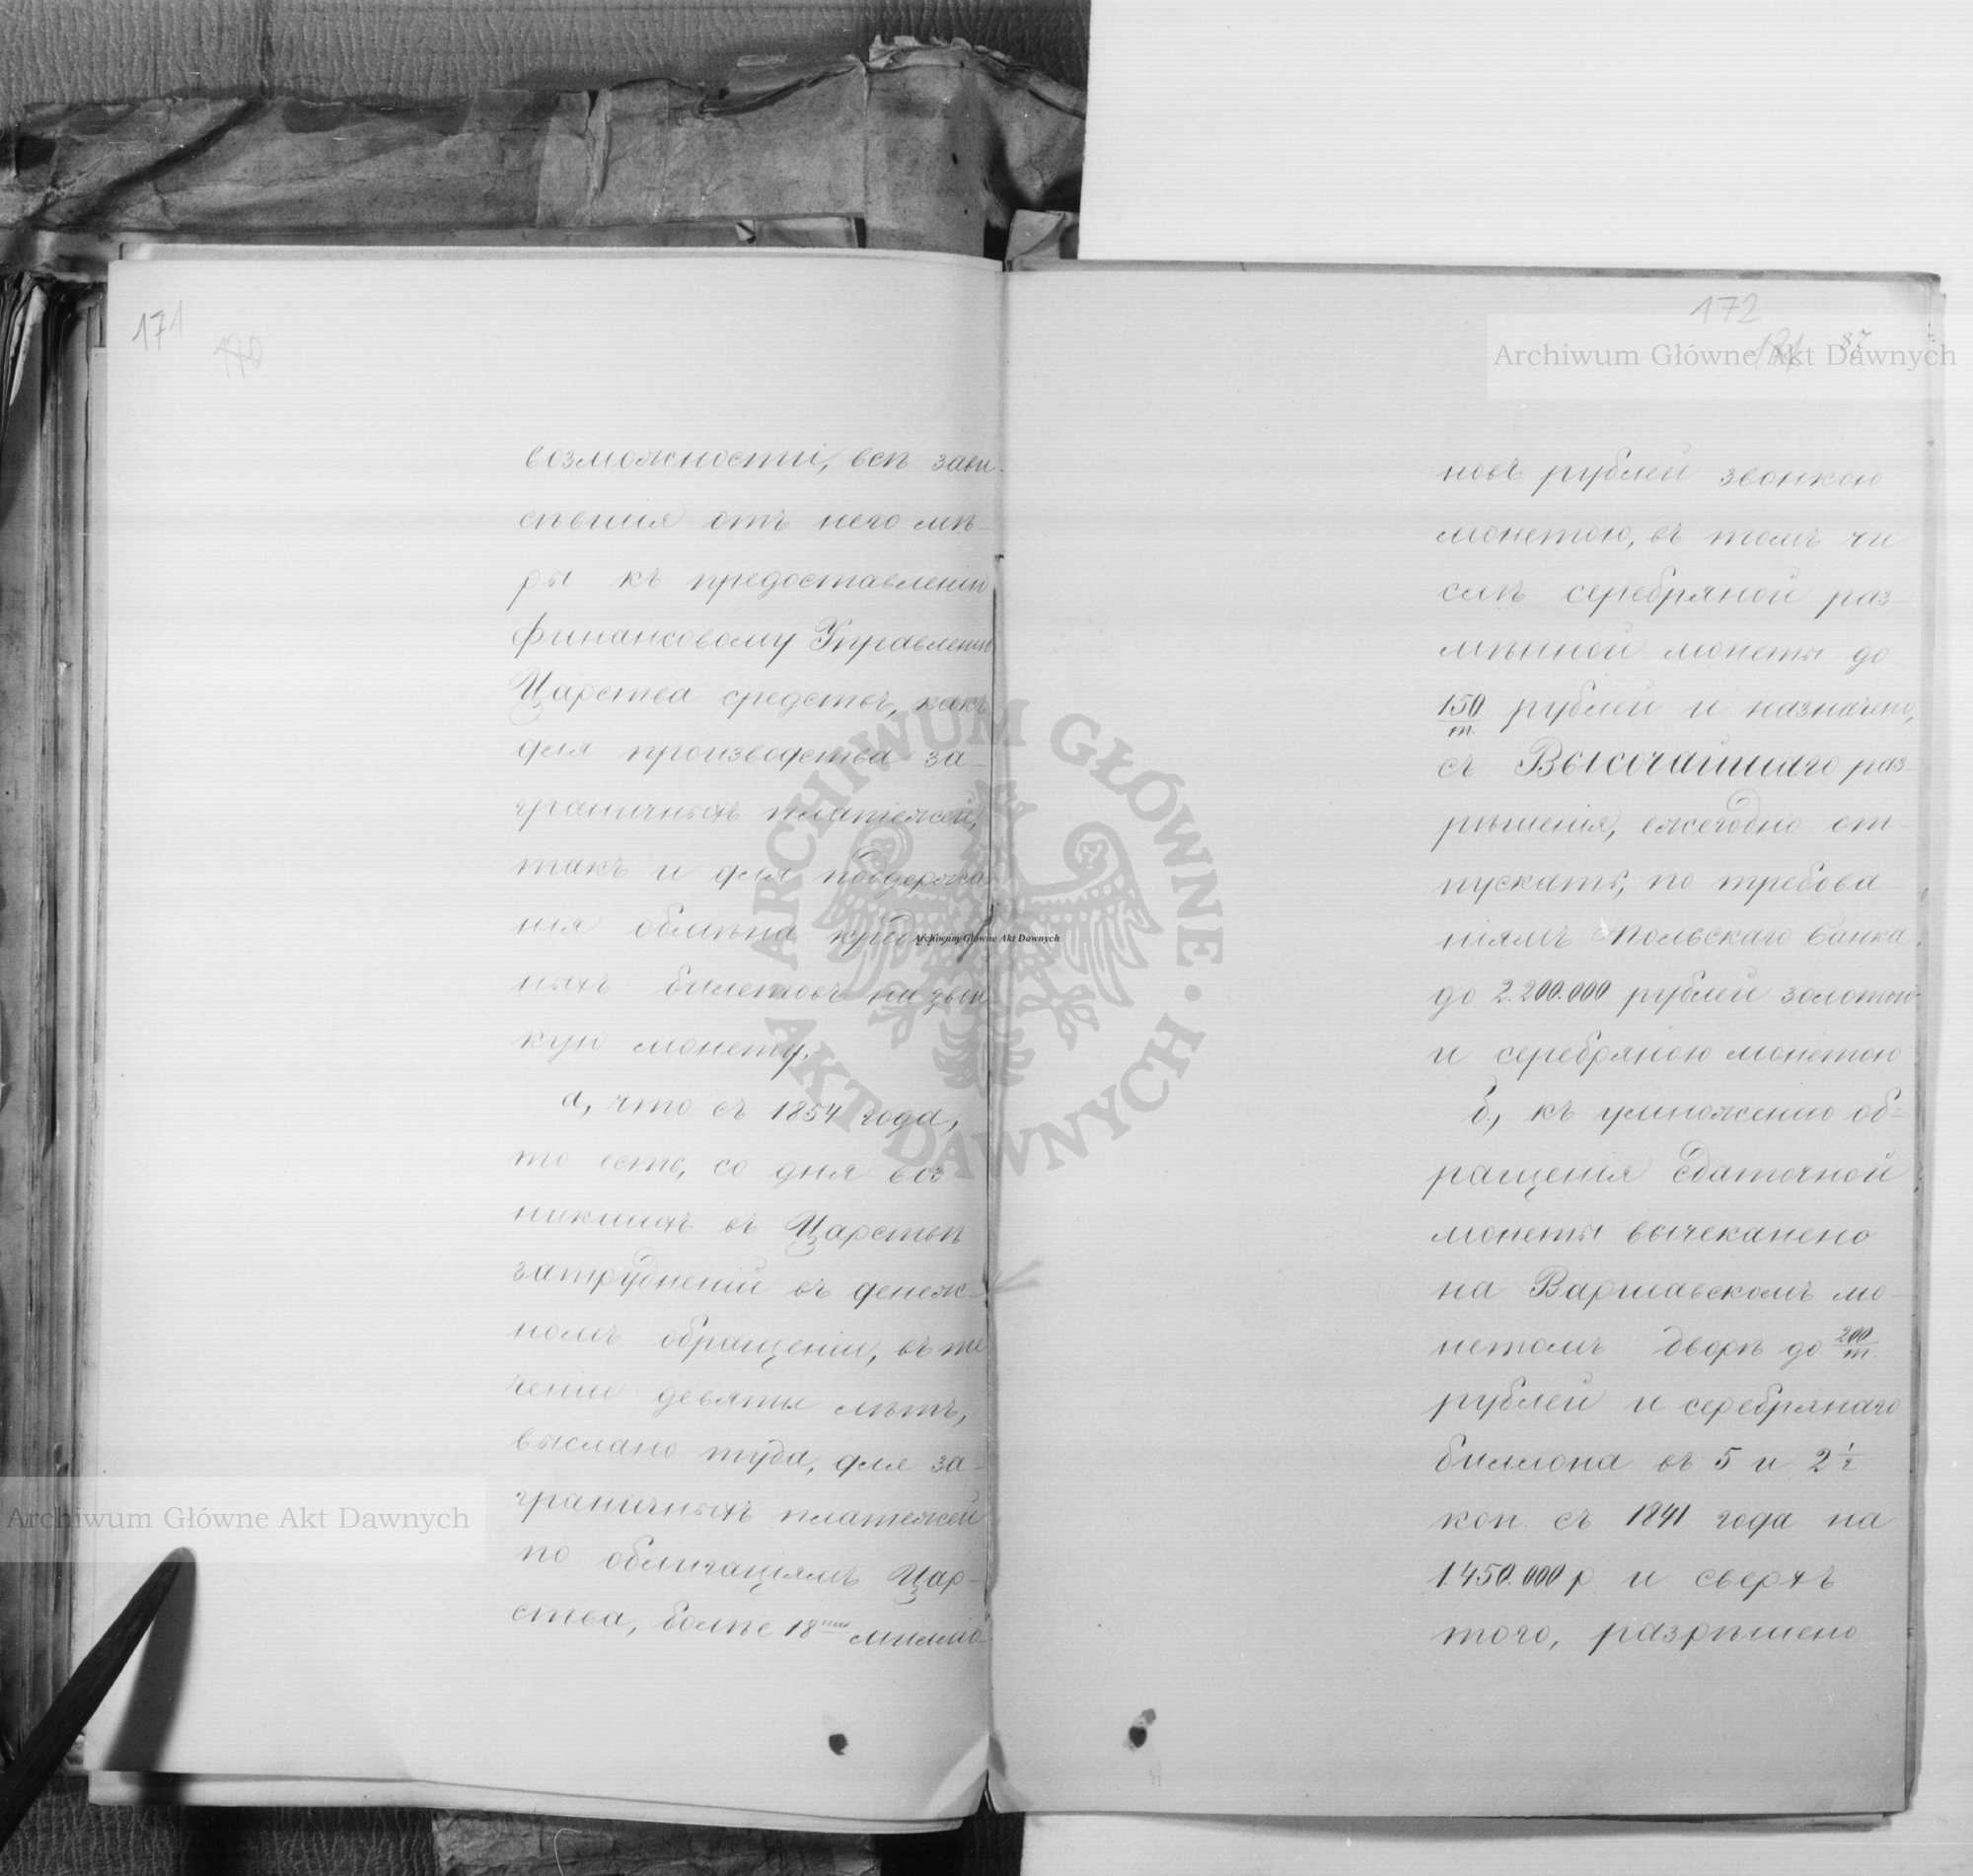 171
170
возможности, всѣ зави-
сѣвшія отъ него мѣ-
ры къ предоставленію
финансовому Управленію
Царства средствъ, какъ
для производства за-
граничныхъ платежей,
такъ и для поддержа-
нія обмѣна кредит-
ныхъ билетовъ на звон-
кую монету.
а, что съ 1854 года,
то есть, со дня воз-
никшихъ въ Царствѣ
затрудненій въ денеж-
номъ обращеніи, въ те
ченіи девяти лѣтъ,
выслано туда, для за-
граничныхъ платежей
по облигаціямъ Цар-
ства, болѣе 18ти милліо-
172
171 87
новъ рублей звонкою
монетою, въ томъ чи
слѣ серебряной раз-
мѣнной монеты до
150/т. рублей и назначено,
съ Высочайшаго раз-
рѣшенія, ежегодно от-
пускать, по требова-
ніямъ Польскаго Банка,
до 2.200.000 рублей золотою
и серебряною монетою
б, къ умноженію об-
ращенія сдаточной
монеты вычеканено
на Варшавскомъ мо-
нетомъ дворѣ до 200/т.
рублей и серебрянаго
биллона въ 5 и 2 1/2
коп. съ 1841 года на
1.450.000 р и сверхъ
того, разрѣшено
Archiwum Główne Akt Dawnych
Archiwum Główne Akt Dawnych
Archiwum Główne Akt Dawnych
ARCHIWUM GŁÓWNE • AKT DAWNYCH •